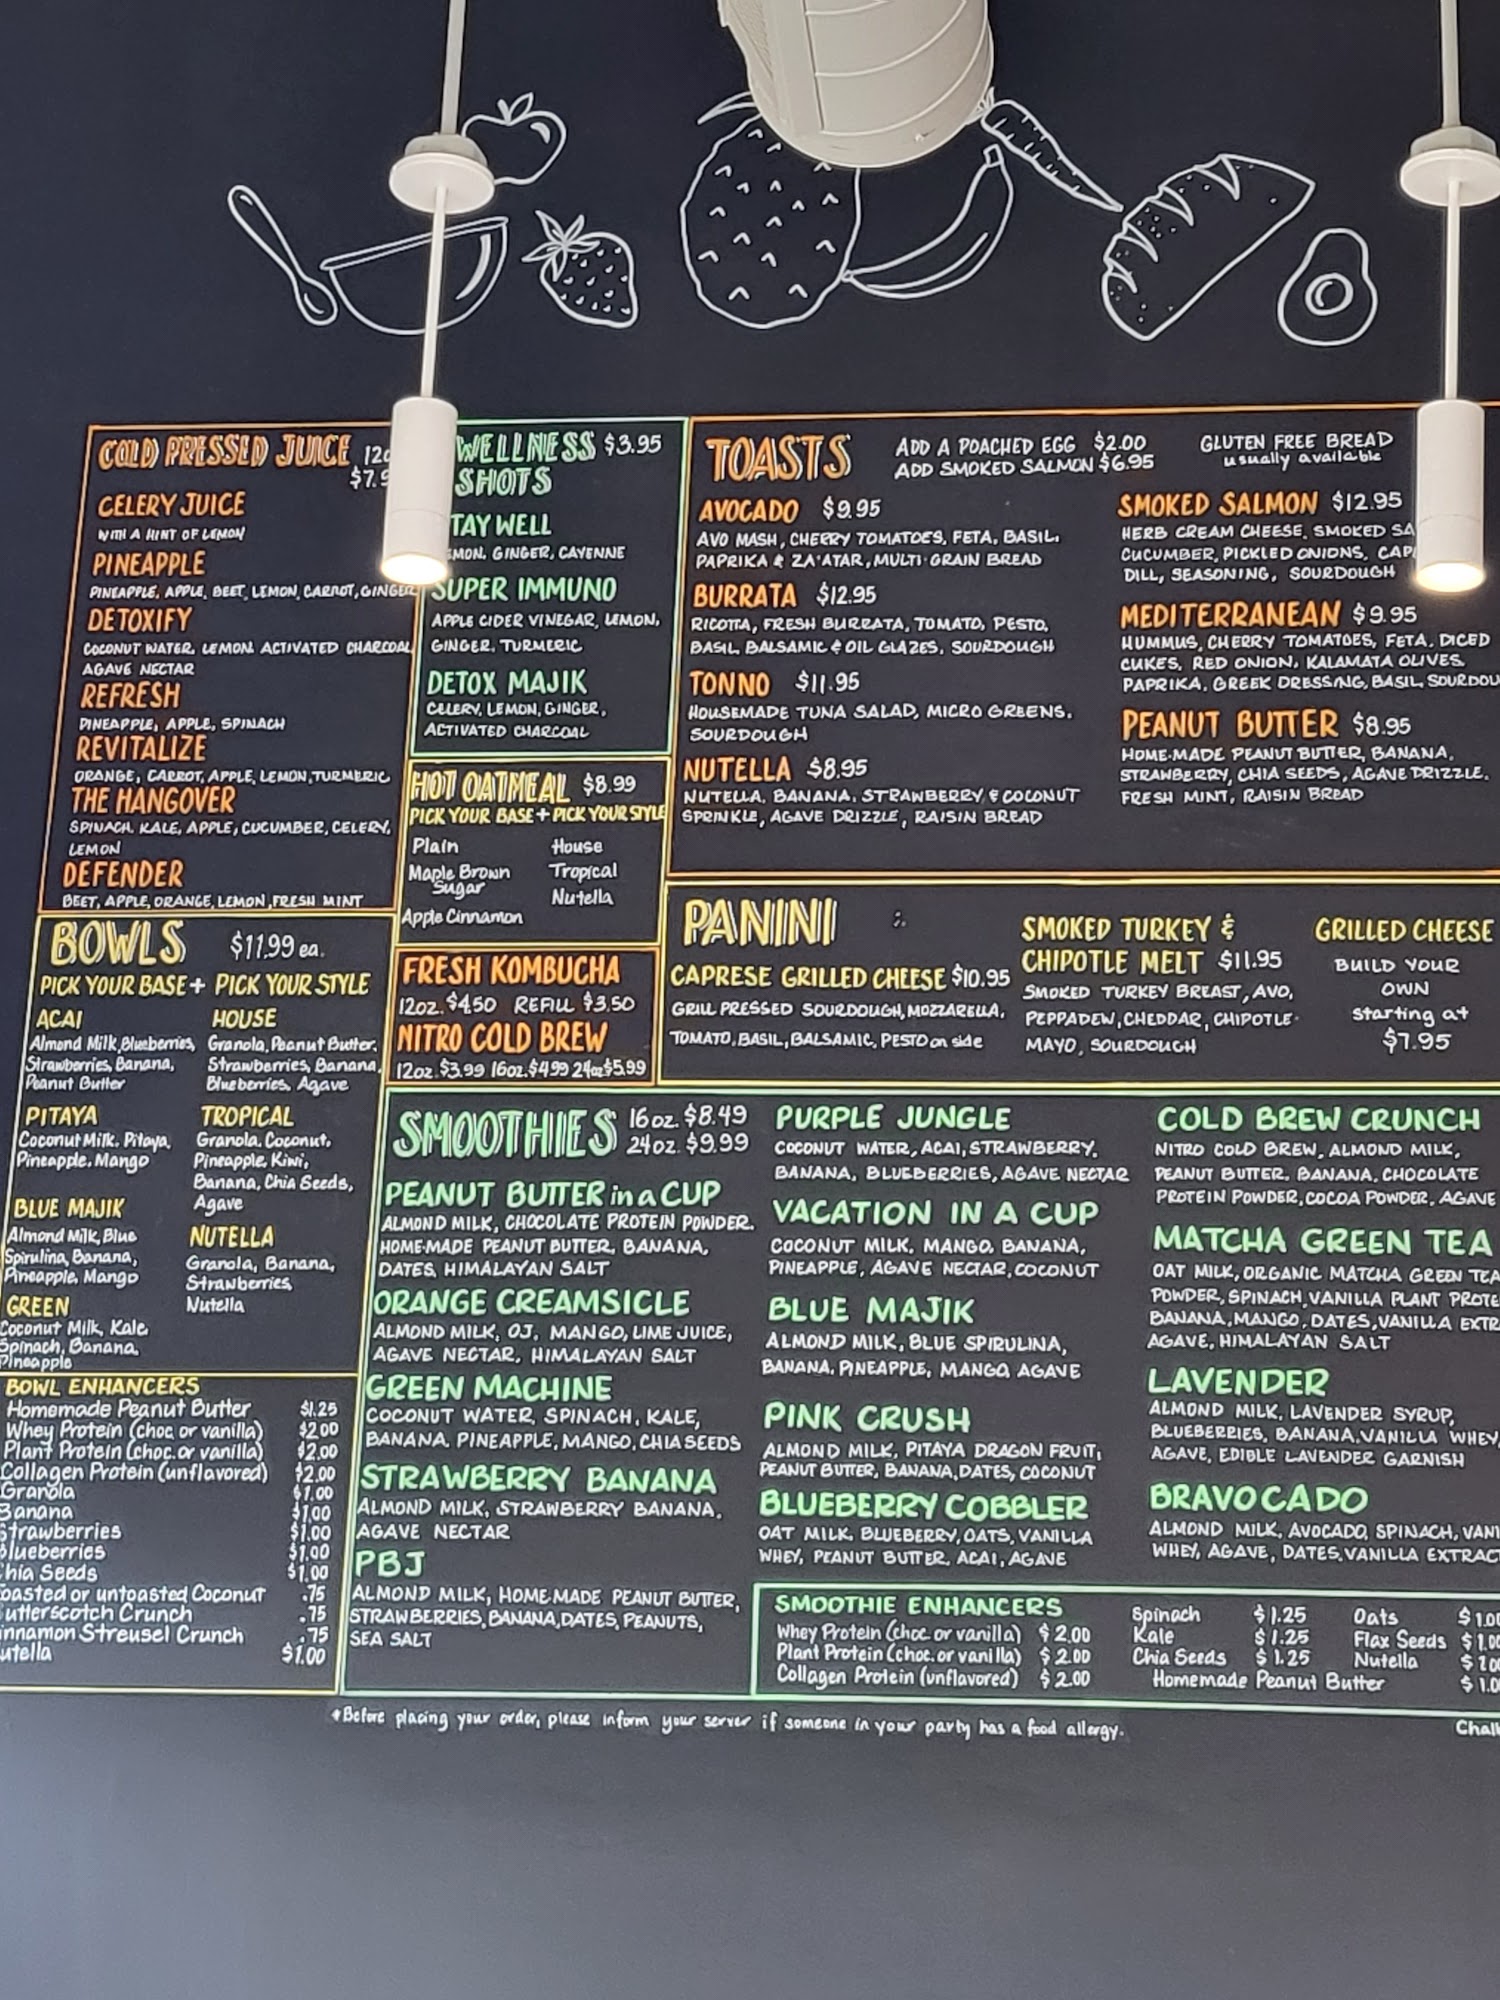 COLD PRESSED JUICE
CELERY JUICE
WITH A HINT OF LEMON
PINEAPPLE
PINEAPPLE, APPLE, BEET, LEMON, CARROT, GINGER
DETOXIFY
COCONUT WATER, LEMON, ACTIVATED CHARCOAL,
AGAVE NECTAR
REFRESH
PINEAPPLE, APPLE, SPINACH
REVITALIZE
ORANGE, CARROT, APPLE, LEMON, TURMERIC
THE HANGOVER
SPINACH, KALE, APPLE, CUCUMBER, CELERY,
LEMON
DEFENDER
BEET, APPLE, ORANGE, LEMON, FRESH MINT
WELLNESS $3.95
SHOTS
TAY WELL
MON, GINGER, CAYENNE
SUPER IMMUNO
APPLE CIDER VINEGAR, LEMON,
GINGER, TURMERIC
DETOX MAJIK
CELERY, LEMON, GINGER,
ACTIVATED CHARCOAL
HOT OATMEAL $8.99
PICK YOUR BASE + PICK YOUR STYLE
Plain House
Maple Brown Tropical
Sugar Nutella
Apple Cinnamon
FRESH KOMBUCHA
12oz. $4.50 REFILL $3.50
NITRO COLD BREW
12oz. $3.99 16oz. $4.99 24oz $5.99
TOASTS
ADD A POACHED EGG $2.00
ADD SMOKED SALMON $6.95
GLUTEN FREE BREAD
usually available
AVOCADO $9.95
AVO MASH, CHERRY TOMATOES, FETA, BASIL,
PAPRIKA & ZA'ATAR, MULTI-GRAIN BREAD
BURRATA $12.95
RICOTTA, FRESH BURRATA, TOMATO, PESTO,
BASIL, BALSAMIC & OIL GLAZES, SOURDOUGH
TONNO $11.95
HOUSEMADE TUNA SALAD, MICRO GREENS,
SOURDOUGH
NUTELLA $8.95
NUTELLA, BANANA, STRAWBERRY & COCONUT
SPRINKLE, AGAVE DRIZZLE, RAISIN BREAD
SMOKED SALMON $12.95
HERB CREAM CHEESE, SMOKED SA
CUCUMBER, PICKLED ONIONS, CAP
DILL, SEASONING, SOURDOUGH
MEDITERRANEAN $9.95
HUMMUS, CHERRY TOMATOES, FETA, DICED
CUKES, RED ONION, KALAMATA OLIVES
PAPRIKA, GREEK DRESSING, BASIL, SOURDOU
PEANUT BUTTER $8.95
HOME-MADE PEANUT BUTTER, BANANA,
STRAWBERRY, CHIA SEEDS, AGAVE DRIZZLE,
FRESH MINT, RAISIN BREAD
PANINI
CAPRESE GRILLED CHEESE $10.95
GRILL PRESSED SOURDOUGH, MOZZARELLA,
TOMATO, BASIL, BALSAMIC, PESTO on side
SMOKED TURKEY &
CHIPOTLE MELT $11.95
SMOKED TURKEY BREAST, AVO,
PEPPADEW, CHEDDAR, CHIPOTLE
MAYO, SOURDOUGH
GRILLED CHEESE
BUILD YOUR
OWN
starting at
$7.95
BOWLS $11.99 ea.
PICK YOUR BASE + PICK YOUR STYLE
ACAI
Almond Milk, Blueberries,
Strawberries, Banana,
Peanut Butter
PITAYA
Coconut Milk, Pitaya,
Pineapple, Mango
BLUE MAJIK
Almond Milk, Blue
Spirulina, Banana,
Pineapple, Mango
GREEN
Coconut Milk, Kale,
Spinach, Banana,
Pineapple
HOUSE
Granola, Peanut Butter,
Strawberries, Banana,
Blueberries, Agave
TROPICAL
Granola, Coconut,
Pineapple, Kiwi,
Banana, Chia Seeds,
Agave
NUTELLA
Granola, Banana,
Strawberries
Nutella
BOWL ENHANCERS
Homemade Peanut Butter $1.25
Whey Protein (choc or vanilla) $2.00
Plant Protein (choc. or vanilla) $2.00
Collagen Protein (unflavored) $2.00
Granola $1.00
Banana $1.00
Strawberries $1.00
lueberries $1.00
hia Seeds $1.00
oasted or untoasted Coconut .75
utterscotch Crunch .75
innamon Streusel Crunch .75
utella $1.00
SMOOTHIES 16oz. $8.49
24oz. $9.99
PEANUT BUTTER in a CUP
ALMOND MILK, CHOCOLATE PROTEIN POWDER,
HOME-MADE PEANUT BUTTER, BANANA,
DATES, HIMALAYAN SALT
ORANGE CREAMSICLE
ALMOND MILK, OJ, MANGO, LIME JUICE,
AGAVE NECTAR, HIMALAYAN SALT
GREEN MACHINE
COCONUT WATER, SPINACH, KALE,
BANANA, PINEAPPLE, MANGO, CHIA SEEDS
STRAWBERRY BANANA
ALMOND MILK, STRAWBERRY BANANA,
AGAVE NECTAR
PBJ
ALMOND MILK, HOME-MADE PEANUT BUTTER,
STRAWBERRIES, BANANA, DATES, PEANUTS,
SEA SALT
PURPLE JUNGLE
COCONUT WATER, ACAI, STRAWBERRY,
BANANA, BLUEBERRIES, AGAVE NECTAR
VACATION IN A CUP
COCONUT MILK, MANGO, BANANA,
PINEAPPLE, AGAVE NECTAR, COCONUT
BLUE MAJIK
ALMOND MILK, BLUE SPIRULINA,
BANANA, PINEAPPLE, MANGO, AGAVE
PINK CRUSH
ALMOND MILK, PITAYA DRAGON FRUIT,
PEANUT BUTTER, BANANA, DATES, COCONUT
BLUEBERRY COBBLER
OAT MILK, BLUEBERRY, OATS, VANILLA
WHEY, PEANUT BUTTER, ACAI, AGAVE
COLD BREW CRUNCH
NITRO COLD BREW, ALMOND MILK,
PEANUT BUTTER, BANANA, CHOCOLATE
PROTEIN POWDER, COCOA POWDER, AGAVE
MATCHA GREEN TEA
OAT MILK, ORGANIC MATCHA GREEN TEA
POWDER, SPINACH, VANILLA PLANT PROTE
BANANA, MANGO, DATES, VANILLA EXTR
AGAVE, HIMALAYAN SALT
LAVENDER
ALMOND MILK, LAVENDER SYRUP,
BLUEBERRIES, BANANA, VANILLA WHEY,
AGAVE, EDIBLE LAVENDER GARNISH
BRAVOCADO
ALMOND MILK, AVOCADO, SPINACH, VANI
WHEY, AGAVE, DATES, VANILLA EXTRAC
SMOOTHIE ENHANCERS
Whey Protein (choc or vanilla) $2.00
Plant Protein (choc. or vanilla) $2.00
Collagen Protein (unflavored) $2.00
Spinach $1.25
Kale $1.25
Chia Seeds $1.25
Oats
Flax Seeds
Nutella
Homemade Peanut Butter
*Before placing your order, please inform your server if someone in your party has a food allergy.
Chal